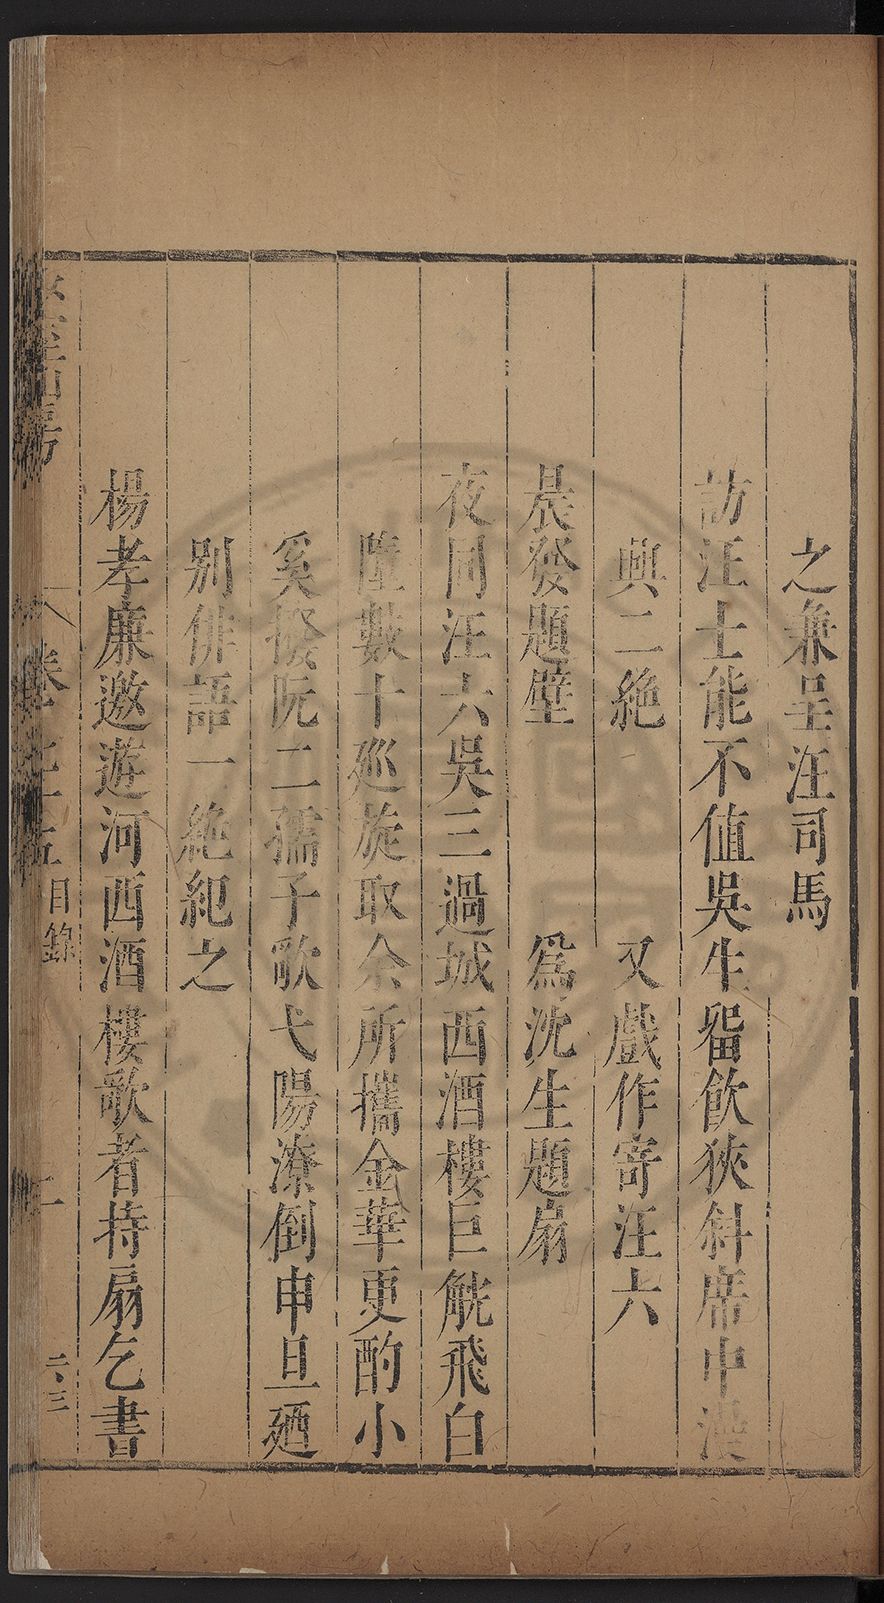 之兼呈汪司馬
訪汪士能不值吳生畱飲狹斜席中漫
興二絶　又戲作寄汪六
晨發題壁　爲沈生題扇
夜同汪六吳三過城西酒樓巨觥飛白
墮數十廵旋取余所攜金華更酌小
奚撥阮二孺子歌弋陽潦倒申旦廼
別俳語一絶紀之
楊孝廉邀遊河西酒樓歌者持扇乞書
山房
卷
目錄
二
二、三